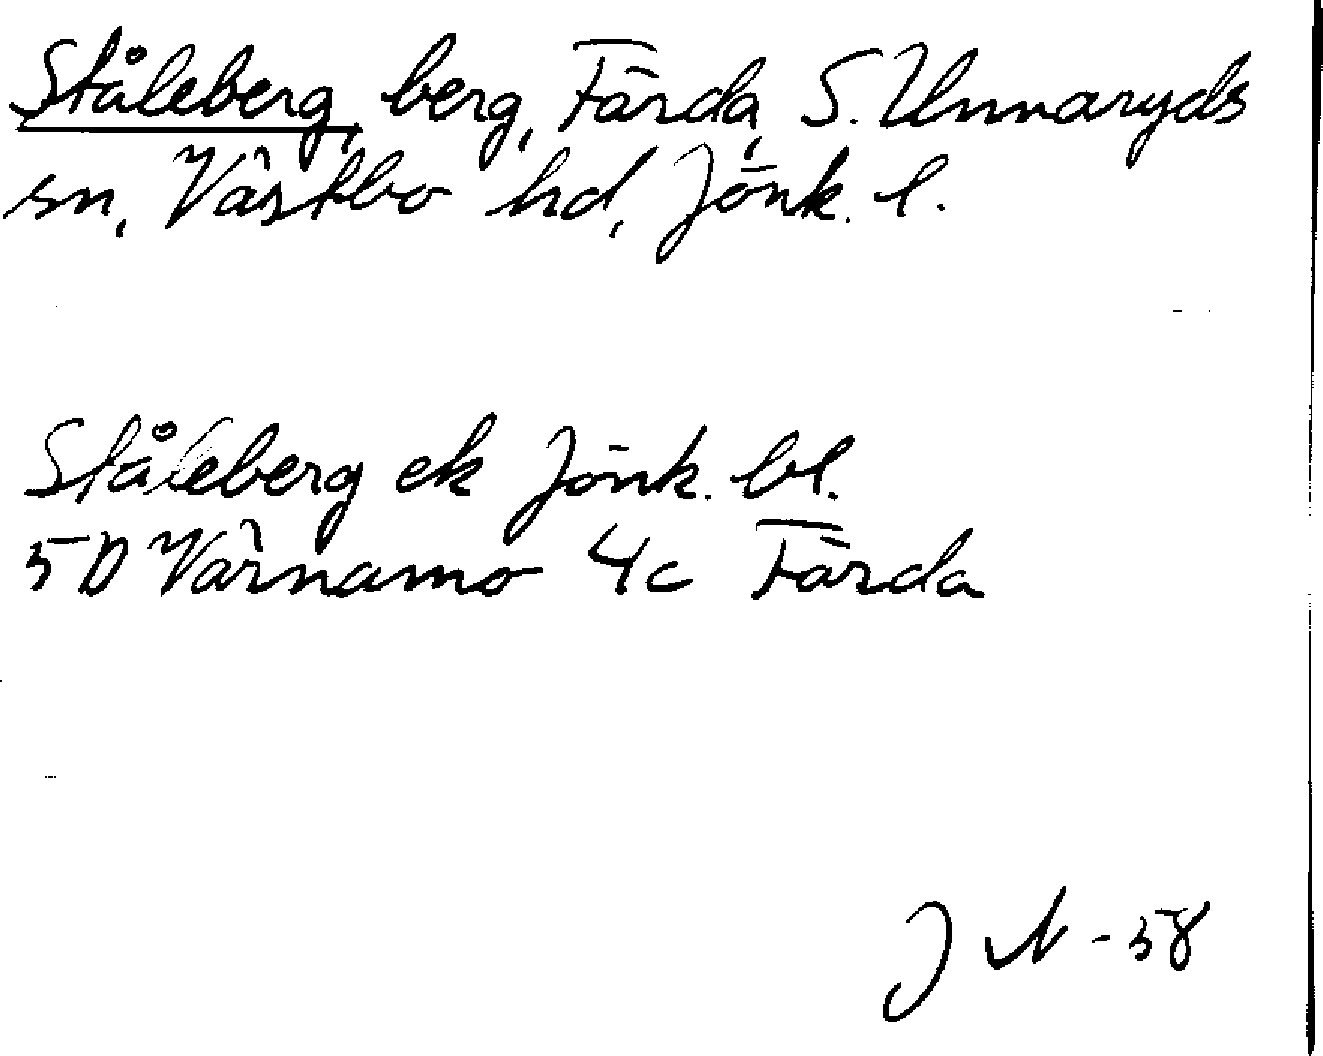 Ståleberg, berg, Färda, S. Unnaryds
sn, Västbo hd, Jönk. l.
Ståleberg ek Jönk. bl.
5D Värnamo 4c Färda
J N -58